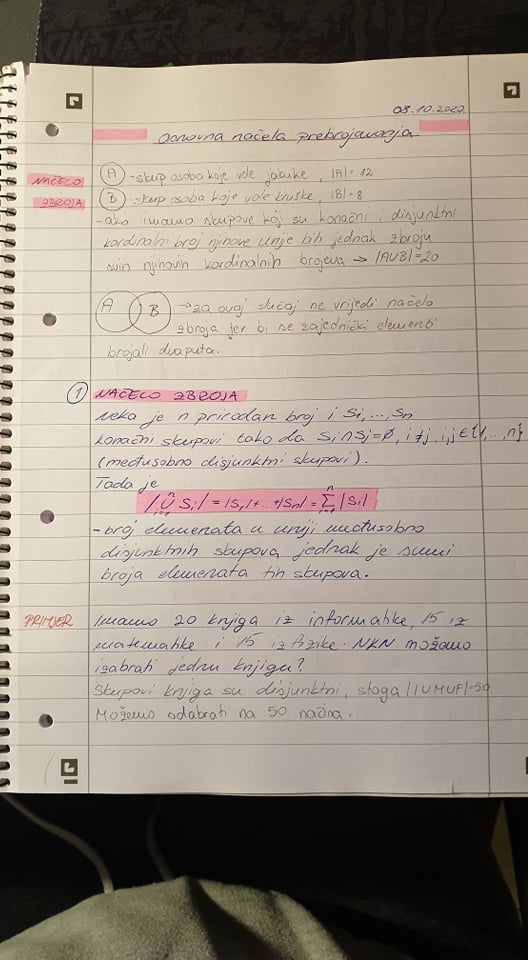 08.10.2020.
Osnovna načela prebrojavanja
NAČELO ZBROJA
A - skup osoba koje vole jabuke, |A| = 12
B - skup osoba koje vole kruške, |B| = 8
- ako imamo skupove koji su konačni i disjunktni
kardinalni broj njihove unije bih jednak zbroju
svih njihovih kardinalnih brojeva → |AUB| = 20
A B → za ovaj slučaj ne vrijedi načelo
zbroja jer bi se zajednički elementi
brojali dvaputa.
1 NAČELO ZBROJA
Neka je n prirodan broj i Si, ..., Sn
konačni skupovi tako da Si∩Sj=∅, i≠j, i,j∈{1,...,n}
(međusobno disjunktni skupovi).
Tada je
|∪ⁿᵢ₌₁ Si| = |S₁| + ... + |Sn| = Σⁿᵢ₌₁ |Si|
- broj elemenata u uniji međusobno
disjunktnih skupova jednak je sumi
broja elemenata tih skupova.
PRIMJER Imamo 20 knjiga iz informatike, 15 iz
matematike i 15 iz fizike. NKN možemo
izabrati jednu knjigu?
Skupovi knjiga su disjunktni, stoga |IUMUF|=50
Možemo odabrati na 50 načina.